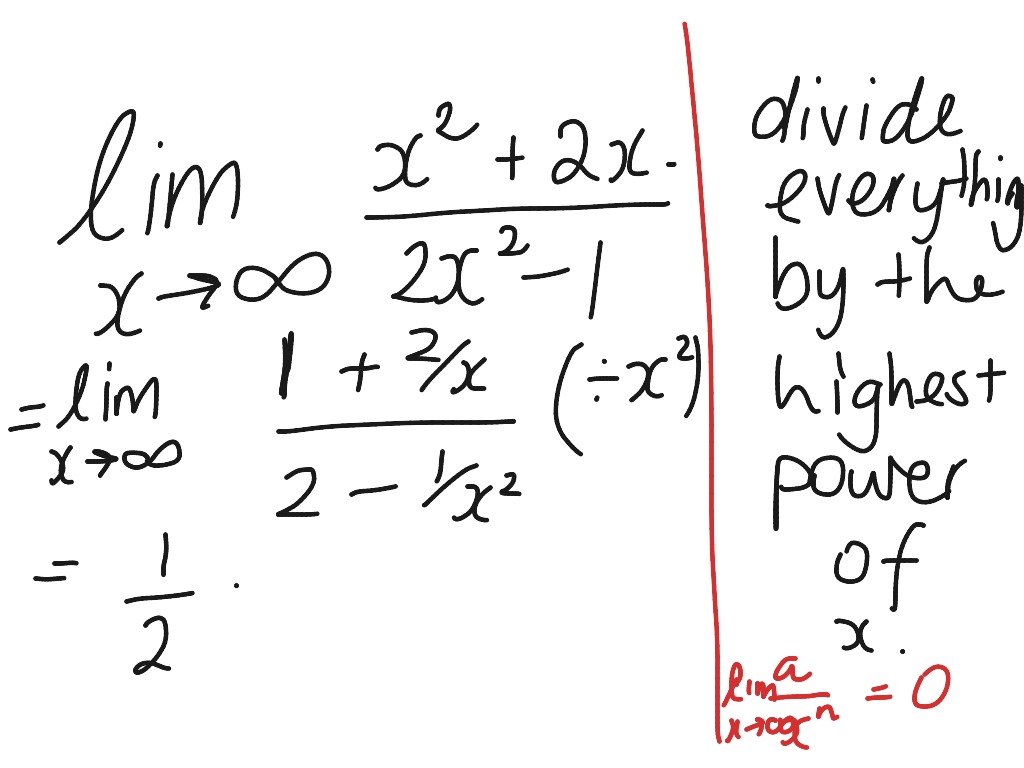 lim x² + 2x
x→∞ 2x² - 1
= lim 1 + 2/x (÷x²)
x→∞ 2 - 1/x²
= 1
2
divide
everything
by the
highest
power
of
x.
lim a = 0
x→∞ xⁿ